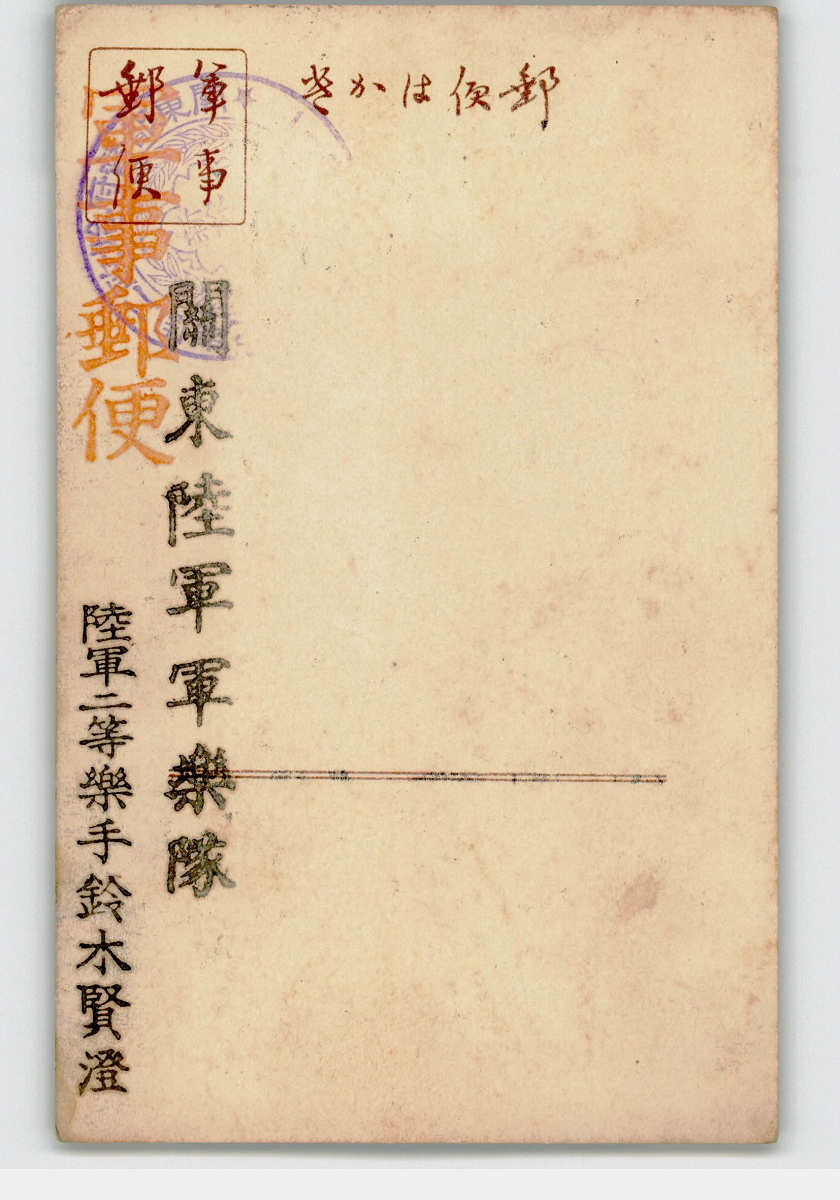 郵便はかき
軍事
郵便
軍事郵便
關東陸軍軍樂隊
陸軍二等樂手鈴木賢澄
關東